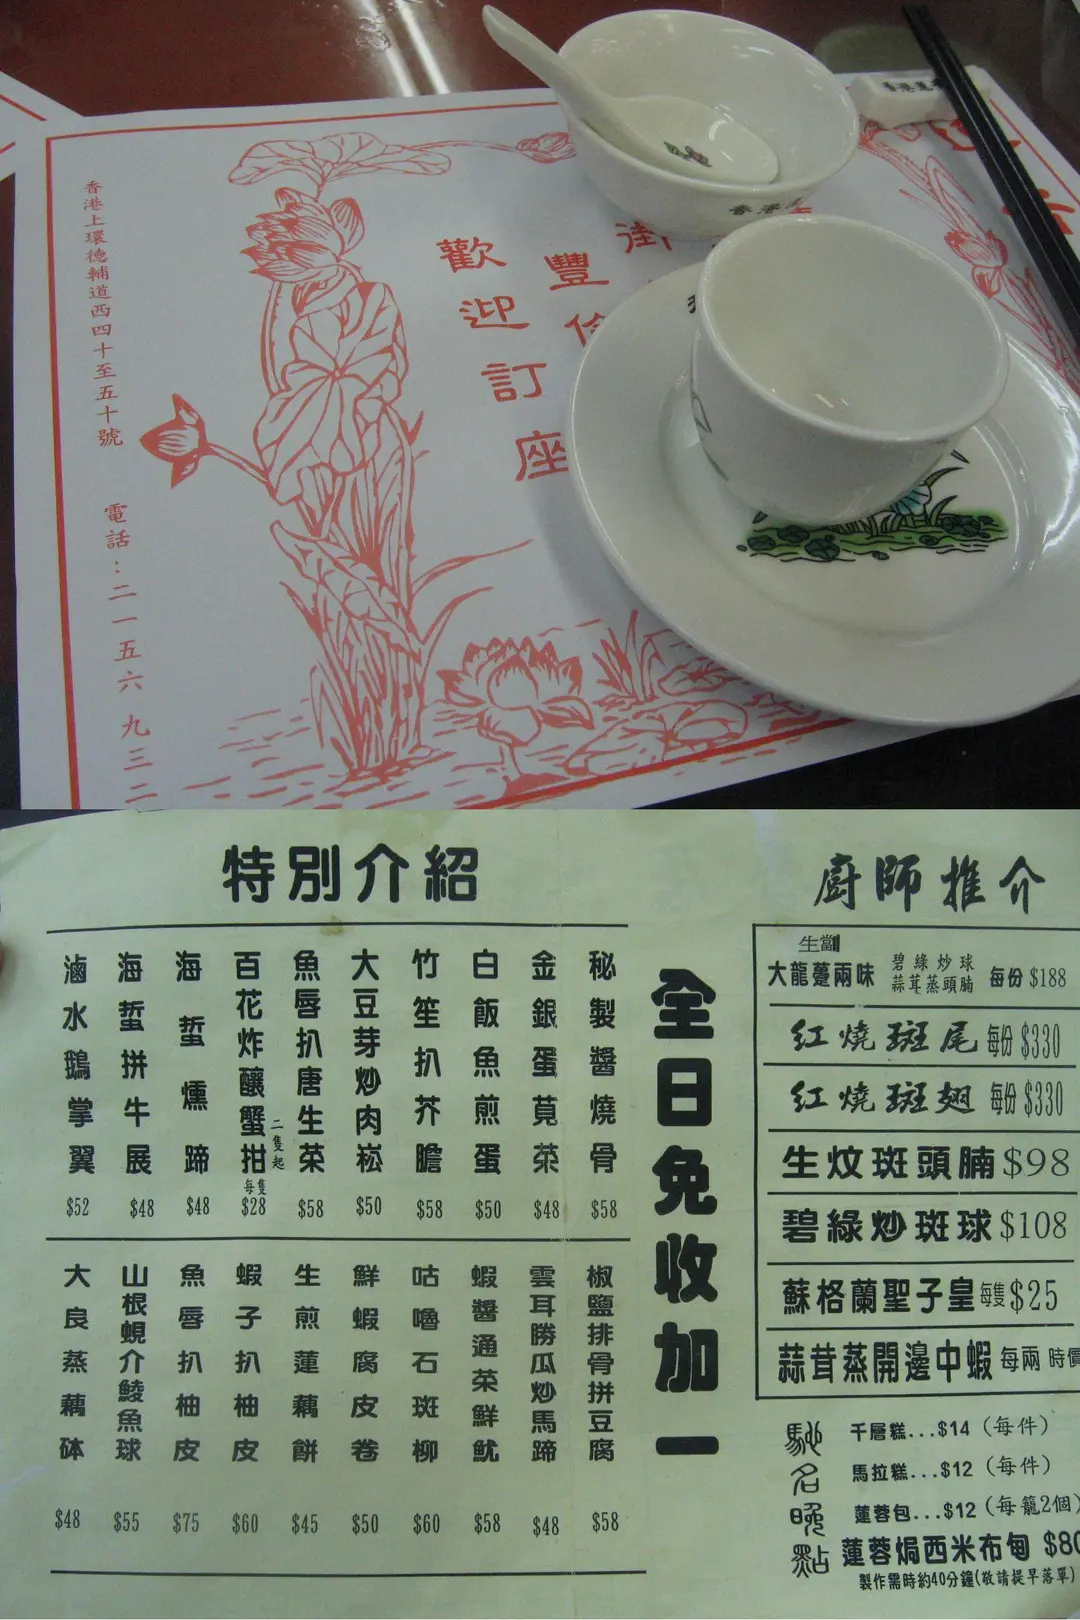 香港蓮
香港
街
豐
歡迎訂座
香港上環德輔道西四十至五十號
電話：二一五六九三二
特別介紹
秘製醬燒骨 $58
金銀蛋莧菜 $48
白飯魚煎蛋 $50
竹笙扒芥膽 $58
大豆芽炒肉崧 $50
魚唇扒唐生菜 $58
百花炸釀蟹拑 二隻起 每隻 $28
海蜇燻蹄 $48
海蜇拼牛展 $48
滷水鵝掌翼 $52
椒鹽排骨拼豆腐 $58
雲耳勝瓜炒馬蹄 $48
蝦醬通菜鮮魷 $58
咕嚕石斑柳 $60
鮮蝦腐皮卷 $50
生煎蓮藕餅 $45
蝦子扒柚皮 $60
魚唇扒柚皮 $75
山根蜆介鯪魚球 $55
大良蒸藕砵 $48
全日免收加一
廚師推介
生劏
大龍躉兩味 碧綠炒球 蒜茸蒸頭腩 每份 $188
紅燒斑尾 每份 $330
紅燒斑翅 每份 $330
生炆斑頭腩 $98
碧綠炒斑球 $108
蘇格蘭聖子皇 每隻 $25
蒜茸蒸開邊中蝦 每兩 時價
馳名晚點
千層糕...$14（每件）
馬拉糕...$12（每件）
蓮蓉包...$12（每籠2個）
蓮蓉焗西米布甸 $80
製作需時約40分鐘(敬請提早落單)